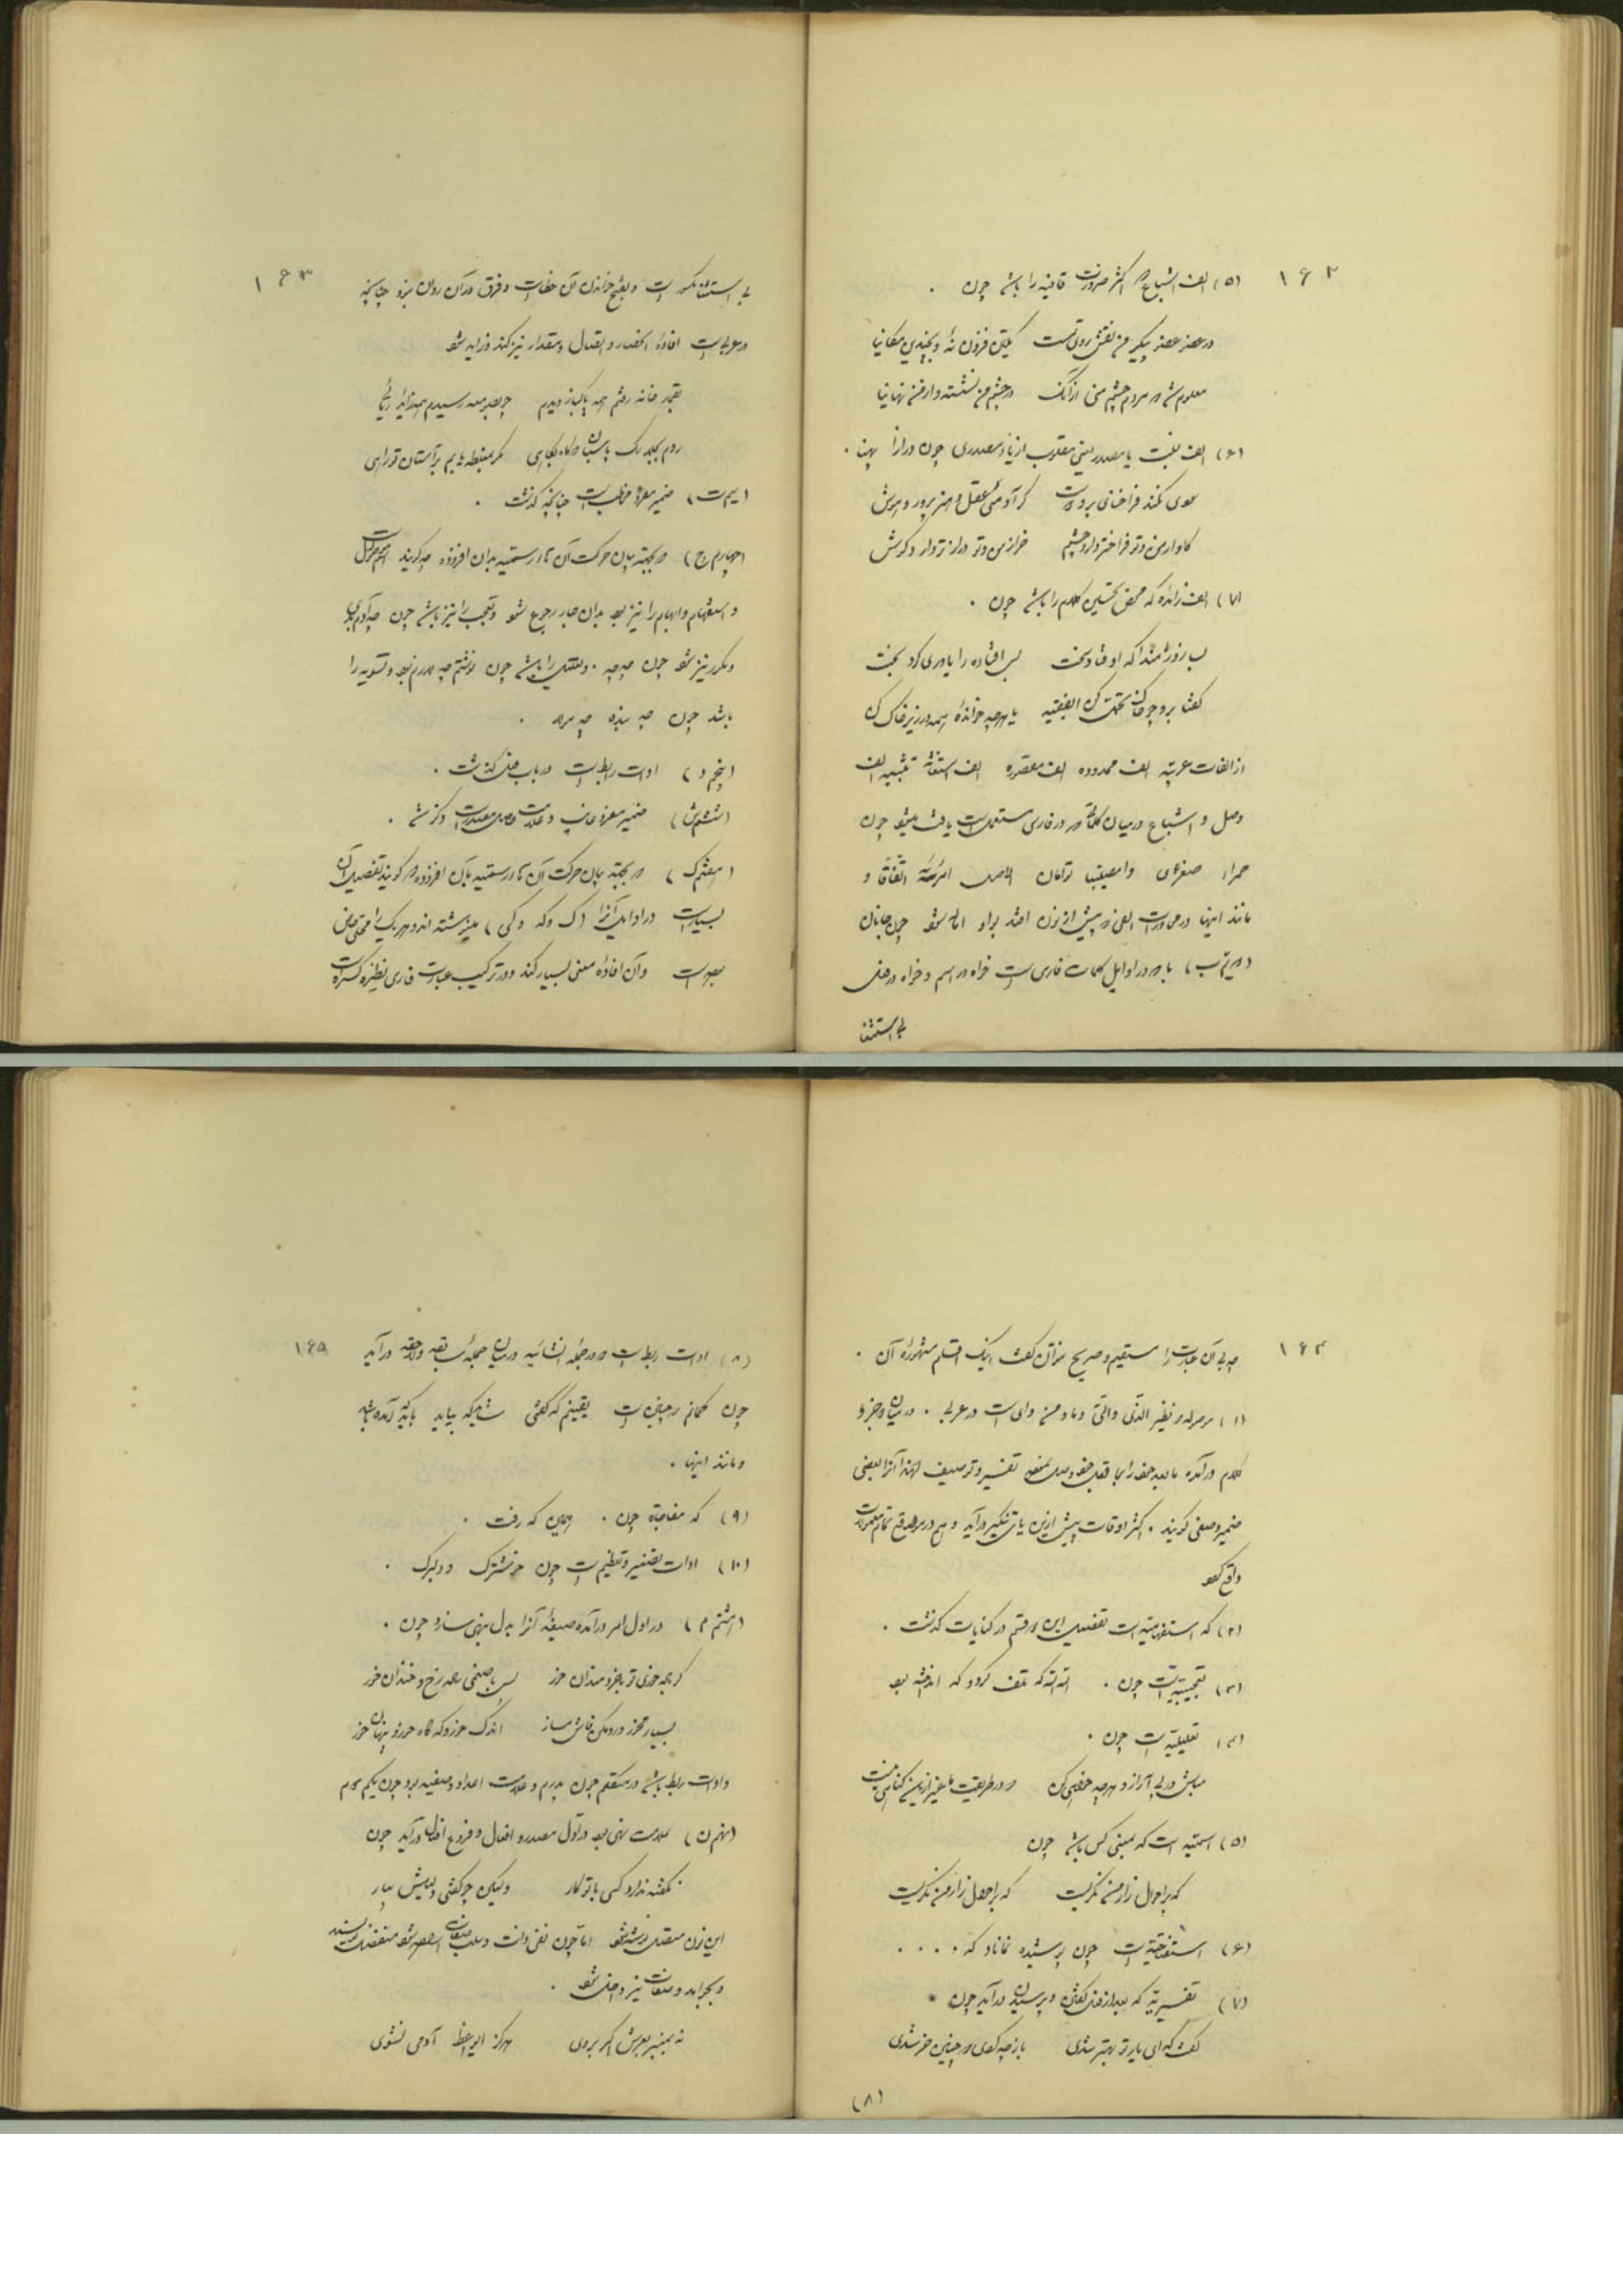 ۱۶۲
(۵) الف اشباع که اکثر ضرورت قافیه را باشد چون ۰
در عضو عضو پیکر من نقش روی تست یکتن فزون نهٔ و بچندین مکانیا
معلوم شد که مردم چشم منی از آنک در چشم من نشسته و از من نهانیا
(۶) الف نسبت یا مصدر یعنی مقلوب از یاء مصدری چون درازا پهنا ۰
دعوی مکند فراخنای بر و دوست کرآدمی بعقل و هنر پرور و هوش
کاو از من و تو فراختر دارد چشم خر از من و تو دراز تر دارد کوش
(۷) الف زائده که محض تحسین کلام را باشد چون ۰
بسا روزمندا که او فتاد سخت بس افتاده را یاوری کرد بخت
کفتا برو چو خاک تحمل کن ای فقیه یا هر چه خواندهٔ همه در زیر خاک کن
از الفات عربیه الف ممدوده الف مقصوره الف استغاثه تثنیه الف
وصل و اشباع در میان کلماتی که در فارسی مستعمل است یافت میشود چون
حمراء صغری وامصیبتا توأمان الحاصل امرئه اتفاقا و
مانند اینها در محاورت الفی که پیش از نون افتد بواو اماله شود چون جانان
(دویم ب) با که در اوایل کلمات فارسی است خواه در اسم و خواه در فعل
بی استثنا
۱۶۳
بی استثنا مکسور است و بفتح خواندن آن خطاست و فرق در آن روان بنود چنانچه
در عربی است افادهٔ انحصار و اتصال و مقدار نیز کند و زاید شود
بقمار خانه رفتم همه پاکباز دیدم چو بصومعه رسیدم همه زاهد ریائی
روم بجلد سک پاسبان در که یکجای مکر بغلطه نهم بر آستان تو رای
(سیم ت) ضمیر مفرد مخاطب است چنانچه کذشت ۰
(چهارم چ) که بجهته بیان حرکت آن هاء رسمیه بدان افزوده چه کویند اسم موصول است
و استفهام و ابهام را نیز بود بدان جا رجوع شود و تعجب را نیز باشد چون چه آدم بدی
و مکرر نیز شود چون چه چه ۰ و تعلیل را باشد چون نوشتم چه لازم بود و تسویه را
باشد چون چه بنده چه مولا ۰
(پنجم د) ادات ربط است در باب فعل کذشت ۰
(ششم ش) ضمیر مفرد غایب و علامت حاصل مصدر است و کذشت ۰
(هفتم ک) که بجهته بیان حرکت آن هاء رسمیه بآن افزوده که کویند تفصیل آن
بسیار است در اوایل آنرا (ک و که و کی) مینوشته اند و هر یک را محلی خاص
بوده است و آن افادهٔ معنی بسیار کند و در ترکیب عبارت فارسی نظیر و کثیر است
۱۶۴
که بی آن عبارت را مستقیم و صریح نتوان کفت اینک اقسام مشهورهٔ آن ۰
(۱) موصوله و نظیر الذی والتی و ما و من و ای است در عربی ۰ در میان دو جزو
کلام درآمده ما بعد خود را بما قبل خود وصل بمعنی تفسیر و توصیف لهذا آنرا بعضی
ضمیر وصفی کویند ۰ اکثر اوقات پیش از این یای تنکیر درآید و هم در موقع تمام معمولات
واقع کردد
(۲) که استفهامیه است تفصیل این دو قسم در کنایات کذشت ۰
(۳) تعجبیه است چون ۰ الله الله که تلف کرد و که اندوخته بود
(۴) تعلیلیه است چون ۰
مباش در پی آزار و هر چه خواهی کن که در طریقت ما غیر از این کناهی نیست
(۵) اسمیه است که بمعنی کس باشد چون
که بر احوال زار من نکریست که بر احوال زار من نکریست
(۶) استفتاحیه است چون پوشیده نماناد که ۰۰۰۰
(۷) تفسیریه که بعد از فعل کفتن و پرسیدن درآید چون ۰
کفت که ای یار تو بهتر شدی باز چه کوی که چنین خر شدی
(۸)
۱۶۵
(۸) ادات ربط است که در جملهٔ انشائیه در میان جملهٔ سابقه و لاحقه درآید
چون کمانم که چنین است یقینم که کفتی شاید که بیاید باید که آمده باشد
و مانند اینها ۰
(۹) که مفاجاة چون ۰ همین که رفت ۰
(۱۰) ادات تصغیر و تعظیم است چون خوشترک و دلبرک ۰
(هشتم م) در اول امر درآمده صیغهٔ آنرا بدل بنهی سازد چون ۰
کر باده خوری تو با خردمندان خور یا با صنمی لاله رخ و خندان خور
بسیار مخور ورد مکن فاش مساز اندک خور و که کاه خور و پنهان خور
و ادات ربط باشد در متکلم چون پدرم و علامت اعداد وصفیه بود چون یکم دوم
(نهم ن) علامت نهی بود در اول مصدر و افعال و فروع افعال درآید چون
نکفته ندارد کسی با تو کار ولیکن چو کفتی دلیلش بیار
این نون متصل نوشته شود اما چون نفی ذات و سلب صفات را مقصود شود منفصل نویسند
و بجوامد و صفات نیز داخل شود ۰
نه بمنبر بعرش اکر بروی هرکز ای واعظ آدمی نشوی